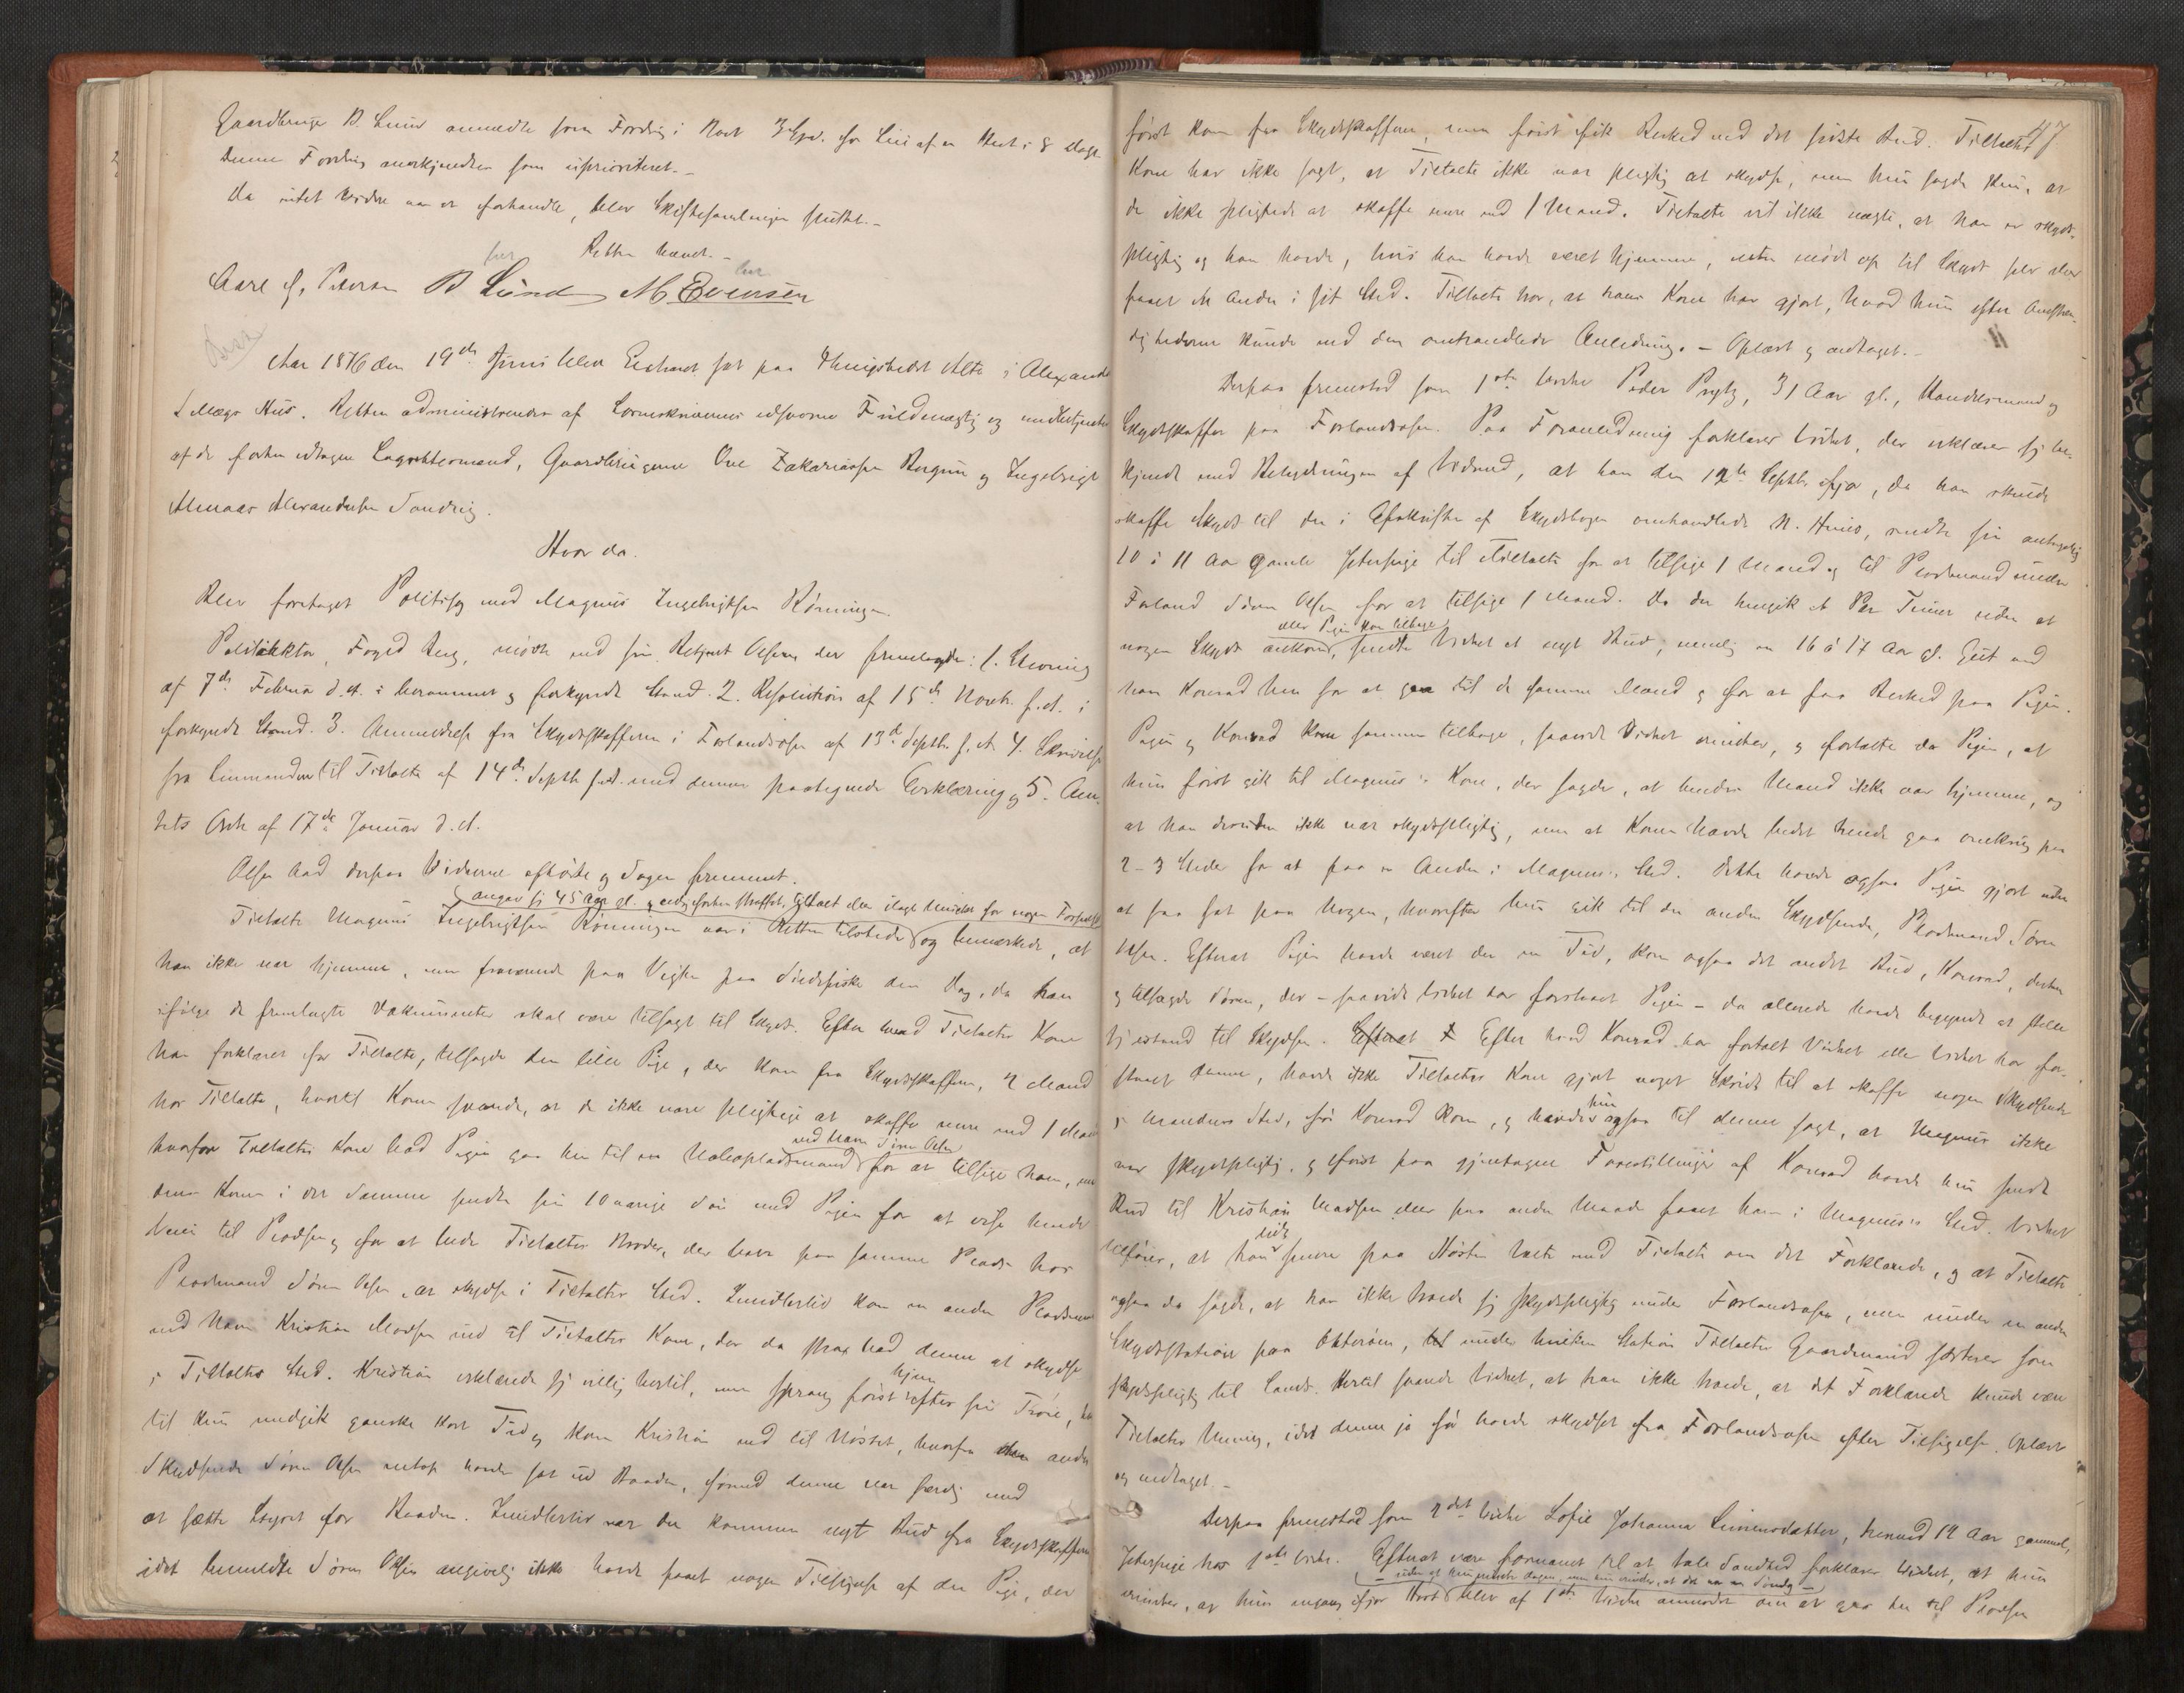 Gaardbruger B. Lund anmeldte som Fordring i Boet 3 Spd. for Leie af en Hest i 8 Dage.
Denne Fordring anerkjendtes som uprioriteret.-
Da intet videre var at forhandle, blev Skiftesamlingen sluttet.-
Retten hævet.-
Carl J. Petersen B Lund M Evensen
Aar 1876 den 19de Juni blev Extraret sat paa Thingstedet Alte i
Hus. Retten administreredes af Sorenskriverens edsvorne Fuldmægtig og medbetjentes
af de forhen edtagne Lagrettemænd, Gaardbrugerne Ove Zakariassen og Ingebrigt
Alexandersen
Hvor da.
Blev foretaget Politisag mod Magnus Ingebrigtsen Rønningen.
Politiaktor, Foged mødte ved sin Betjent Olsen der fremlagde: 1. Stevning
af 7de Februar d. A. i berammet og forkyndt Stand. 2. Resolution af 15de Novbr. f. A. i
forkyndt Stand. 3. Anmeldelse fra Skydsskafferen i Forlandsosen af 13de Septbr. f. A. 4. Skrivelse
fra Lensmanden til Tiltalte af 14de Septbr. f. A. med dennes paategnede Erklæring og 5. Am-
tets Ordre af 17de Januar d. A.
Olsen bad derpaa Vidnerne afhørte og Sagen fremmet.
angav sig 45 Aar gl. og aldrig forhen straffet, tiltalt eller ilagt Mulkt for nogen Forseelse
Tiltalte Magnus Ingebrigtsen Rønningen var i Retten tilstede og bemærkede, at
han ikke var hjemme, men fraværende paa Vegten paa Sildefiske den Dag, da han
ifølge de fremlagte Dokumenter skal være tilsagt til Skyds. Efter hvad Tiltaltes Kone
har forklaret for Tiltalte, tilsagde den lille Pige, der kom fra Skydsskafferen, 2 Mand
hos Tiltalte, hvortil Konen svarede, at de ikke vare pligtige at skaffe mere end 1 Mand
ved Navn Søren Olsen
hvorfor Tiltaltes Kone bad Pigen gaa hen til en for at tilsige ham, men
Konen i det Samme sendte sin 10aarige Søn med Pigen for at vise hende
Veien til Pladsen og for at bede Tiltaltes Broder, der boer paa samme Plads hos
Pladsmand Søren Olsen, at skydse i Tiltaltes Sted. Imidlertid kom en anden Pladsmand
ved Navn Kristian Madsen ind til Tiltaltes Kone, der da strax bad denne at skydse
hjem
i Tiltaltes Sted. Kristian erklærede sig villig hertil, men sprang først efter sin Trøie,
til kun medgik ganske kort Tid og kom Kristian ned til Nøstet, hvorfra den anden
Skydsende Søren Olsen netop havde sat ud Baaden, førend denne var færdig med
at sætte Styret for Baaden. Imidlertid var der kommen nyt Bud fra Skydsskafferen
idet bemeldte Søren Olsen angivelig ikke havde faaet nogen Tilsigelse af den Pige, der
47
først kom fra Skydsskafferen, men først fik Besked med det sidste Bud. Tiltaltes
Kone har ikke sagt, at Tiltalte ikke var pligtig at skydse, men hun sagde kun, at
de ikke pligtede at skaffe mere end 1 Mand. Tiltalte vil ikke nægte, at han er skyds-
pligtig og han havde, hvis han havde været hjemme, enten mødt op til Skyds selv eller
faaet en Anden i sit Sted. Tiltalte tror, at hans Kone har gjort, hvad hun efter Omstæn-
dighederne kunde ved den omhandlede Anledning.- Oplæst og vedtaget.-
Derpaa fremstod som 1ste Vidne Peder Prytz, 31 Aar gl., Handelsmand og
Skydsskaffer paa Forlandsosen. Paa Foranledning forklarer Vidnet, der erklærer sig be-
kjendt med Betydningen af Vidneed, at han den 12te Septbr. ifjor, da han skulde
skaffe Skyds til den i Afskriften af Skydsbogen omhandlede N. sendte sin antagelig
10 à 11 Aar gamle Jetterpige til Tiltalte for at tilsige 1 Mand og til Pladsmand under
Forland Søren Olsen for at tilsige 1 Mand. Da der hengik et Par Timer uden at
eller Pigen kom tilbage
nogen Skyds ankom, sendte Vidnet et nyt Bud, nemlig en 16 à 17 Aar gl. Gut ved
navn Konrad hen for at gaa til de samme Mænd og for at faa Besked paa Pigen.
Pigen og Konrad kom sammen tilbage, saavidt Vidnet erindrer, og fortalte da Pigen, at
hun først gik til Magnus's Kone, der sagde, at hendes Mand ikke var hjemme, og
at han desuden ikke var skydspligtig, men at Konen havde bedet hende gaa omkring paa
2-3 Steder for at faa en Anden i Magnus's Sted. Dette havde ogsaa Pigen gjort uden
at faa fat paa Nogen, hvorefter hun gik til den anden Skydsende, Pladsmand Søren
Olsen. Efterat Pigen havde været der en Tid, kom ogsaa det andet Bud, Konrad, derhen
og tilsagde Søren, der - saavidt Vidnet har forstaaet Pigen - da allerede havde begyndt at stelle
sig istand til Skydsen. Efterat Efter hvad Konrad har fortalt Vidnet eller Vidnet har for-
staaet denne, havde ikke Tiltaltes Kone gjort noget Skridt til at skaffe nogen Skydsende
hun
i Mandens Sted, før Konrad kom, og havde ogsaa til denne sagt, at Magnus ikke
var skydspligtig, og først paa gjentagne Forestillinger af Konrad havde hun sendt
Bud til Kristian Madsen eller paa anden Maade faaet ham i Magnus's Sted. Vidnet
tilføier, at han senere paa Høsten talte med Tiltalte om det Forklarede, og at Tiltalte
ogsaa da sagde, at han ikke troede sig skydspligtig under Forlandsosen, men under en anden
Skydsstation paa Otterøen, under hvilken Station Tiltaltes Gaardmand sorterer som
skydspligtig til Lands. Hertil svarede Vidnet, at han ikke troede, at det Forklarede kunde være
Tiltaltes Mening, idet denne jo før havde skydset fra Forlandsosen efter Tilsigelse. Oplæst
og vedtaget.-
Derpaa fremstod som 2det Vidne Sofie Johanna Simonsdatter, henved 12 Aar gammel,
Jetterpige hos 1ste Vidne. Efterat være formanet til at tale Sandhed forklarer Vidnet, at hun
- uden at hun mindes Dagen, men hun erindrer, at det var en Søndag -
erindrer, at hun engang ifjor Høst blev af 1ste Vidne anmodet om at gaa hen til Pladsen